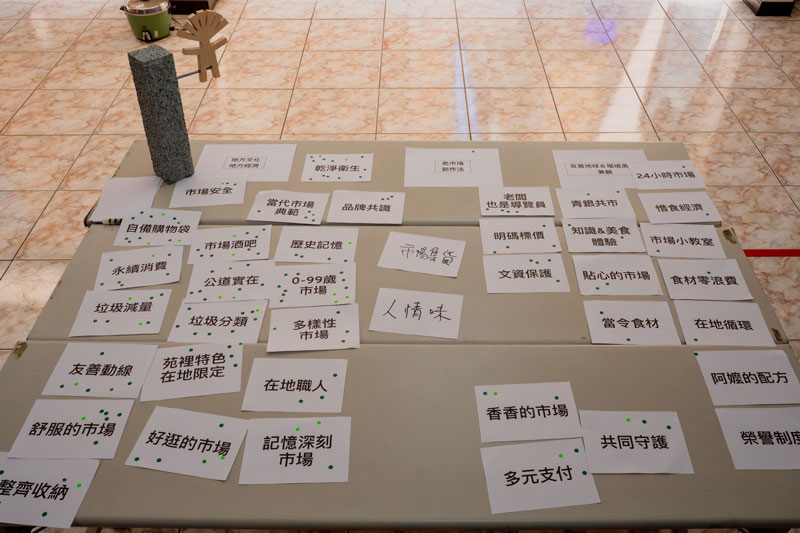 地方文化
地方經濟
乾淨衛生
老市場
新作法
友善地球&環境美
兼顧
24小時市場
市場安全
當代市場
典範
品牌共識
老闆
也是導覽員
青銀共市
惜食經濟
自備購物袋
市場酒吧
歷史記憶
市場集貨
明碼標價
知識&美食
體驗
市場小教室
永續消費
公道實在
0-99歲
市場
文資保護
貼心的市場
食材零浪費
垃圾減量
垃圾分類
多樣性
市場
人情味
當令食材
在地循環
友善動線
苑裡特色
在地限定
在地職人
香香的市場
阿嬤的配方
舒服的市場
好逛的市場
記憶深刻
市場
共同守護
榮譽制度
整齊收納
多元支付